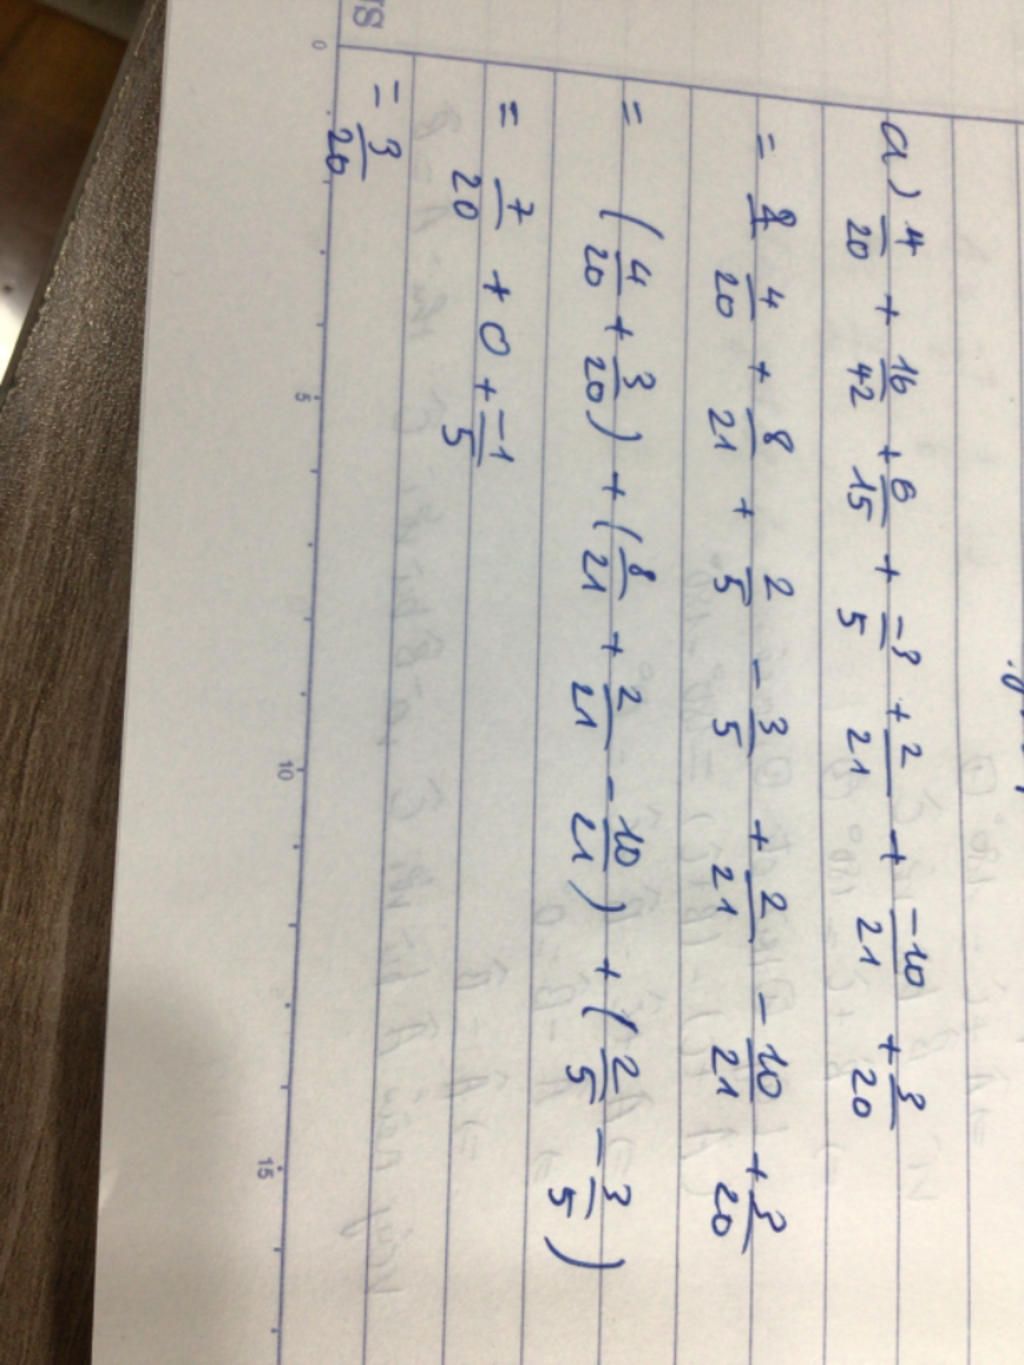 a) 4/20 + 16/42 + 6/15 + -3/5 + 2/21 + -10/21 + 3/20
= 4/20 + 8/21 + 2/5 - 3/5 + 2/21 - 10/21 + 3/20
= (4/20 + 3/20) + (8/21 + 2/21 - 10/21) + (2/5 - 3/5)
= 7/20 + 0 + -1/5
= 3/20
0 5 10 15